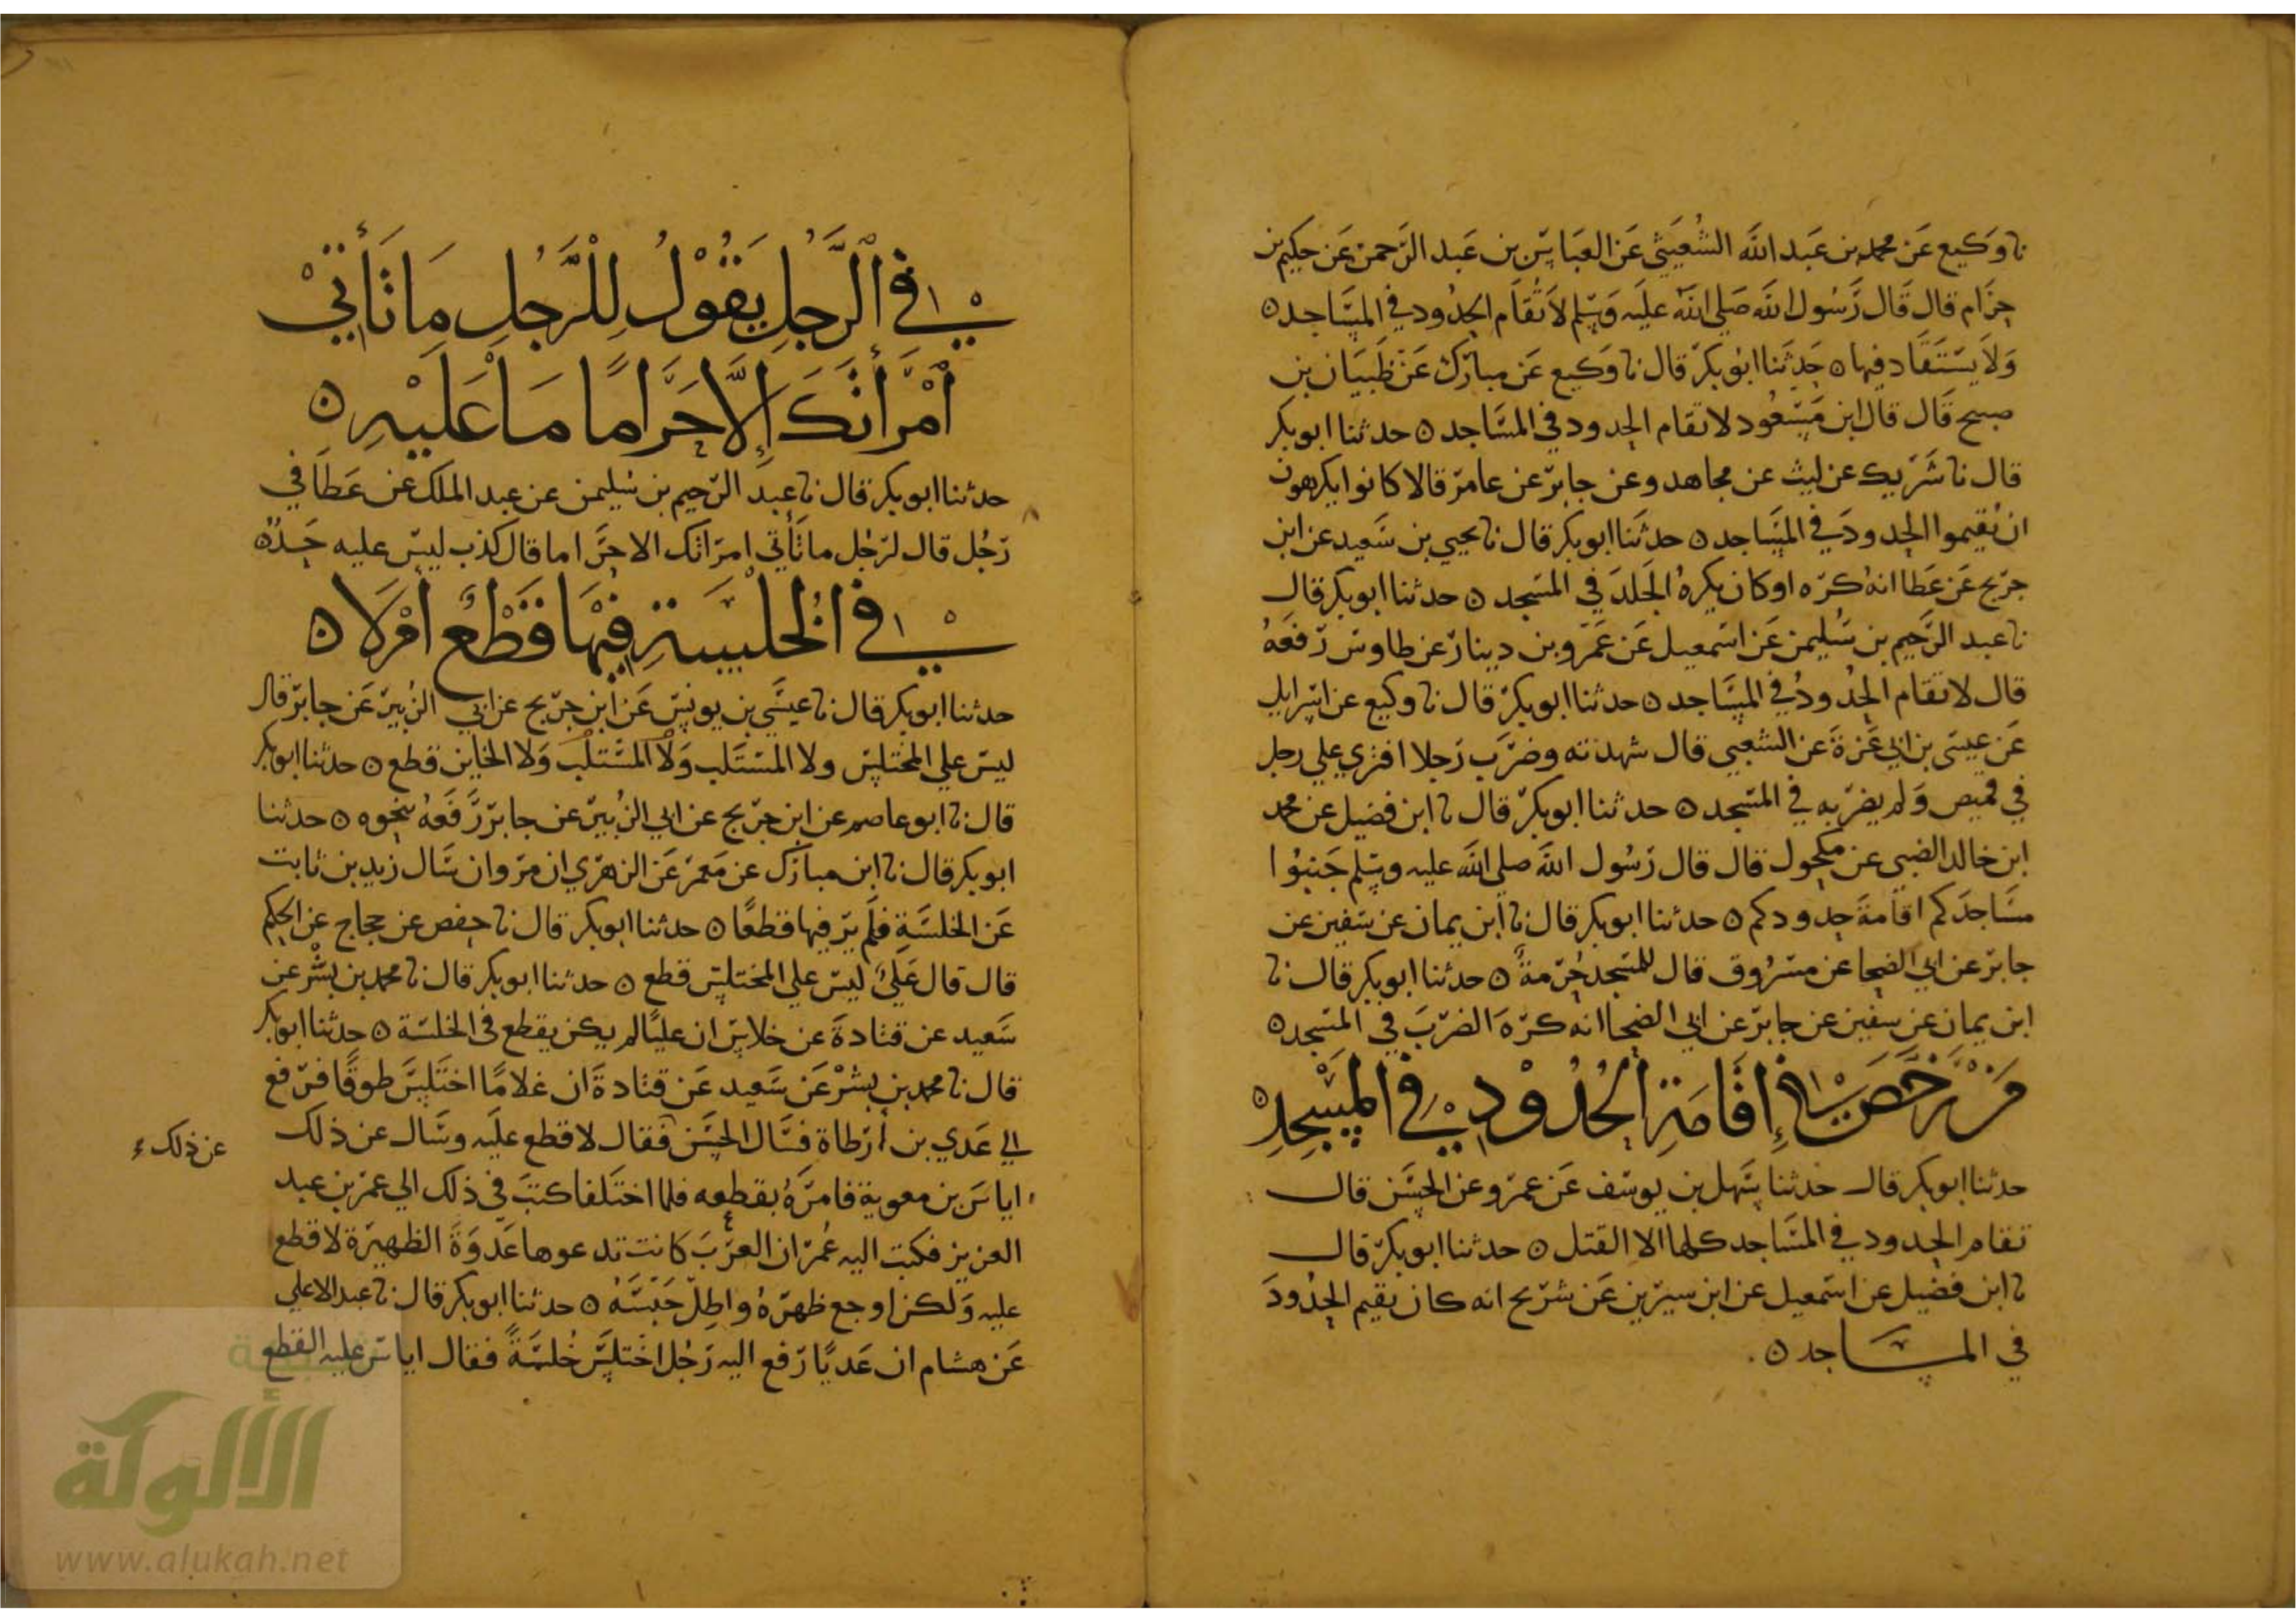 نا وَكيع عَن محمد بن عَبد الله الشُعَيثي عَن العبَاس بن عَبد الرَحمن عَن حكيم بن
حِزَام قال قَال رَسُول الله صَلى الله عليَه وَسَلم لاَ تُقَام الحدُود في المسَاجد ه
وَلاَ يسْتَقَاد فيها ه حَدثَنا ابُو بكر قال نا وَكيع عَن مبارَك عَن ظَبيَان بن
صبيح قَال قال ابن مَسْعُود لا تقام الحدود في المسَاجد ه حدثنا ابو بكر
قال نا شَريك عن ليث عن مجاهد وعن جابر عن عامر قالا كانوا يكرهون
ان يُقيموا الحدودَ في المسَاجد ه حدثَنا ابو بكر قال نا يحيي بن سَعيد عن ابن
جريج عَن عَطا انهُ كره او كان يكرهُ الجَلدَ في المسَجد ه حدثنا ابو بكر قال
نا عبد الرَحيم بن سُليمن عَن اسَمعيل عَن عَمرو بن دينار عن طاوس رَفعَهُ
قال لا تقام الحُدودُ في المسَاجد ه حدثنا ابو بكر قال نا وكيع عن اسرايل
عَن عيسَى بن ابي عَزةَ عن الشعبي قال شهدته وضرَب رَجلا افتري علي رجل
في قميص وَلم يضربه في المسَجد ه حدثنا ابو بكر قال نا ابن فضيل عن محمد
ابن خالد الضبي عن مكحول قال قال رَسُول الله صلى الله عليه وسلم جَنبُوا
مسَاجدَكم اقامةَ حدودكم ه حدثنا ابو بكر قال نا ابن يمان عن سَفين عن
جابر عن ابي الضحا عن مسرُوق قال للمسَجد حُرمةٌ ه حدثنا ابو بكر قال نا
ابن يمان عن سفين عن جابر عن ابي الضحا انه كرهَ الضربَ في المسَجد ه
مَنْ رَخَّصَ فِي إقَامَةِ الحُدُوْدِ فِي المسْجِدِ ه
حدثنا ابو بكر قال حَدثنا سَهل بن يوسَف عَن عمرو عن الحسَن قال
تقام الحدود في المسَاجد كلها الا القتل ه حدثنا ابو بكر قال
نا ابن فضيل عن اسَمعيل عن ابن سيرين عَن شريح انه كان يقيم الحدُودَ
في المسَاجد ه
فِي الرَّجُلِ يَقُوْلُ لِلْرَّجُلِ مَا تَأْتِيْ
امْرَأتَكَ إلاَّ حَرَامًا مَا عَلَيْهِ ه
حدثنا ابو بكر قال نا عبدَ الرَحيم بن سُليمن عن عبد الملك عن عَطَا في
رَجُل قال لرَجُل ما تَأتي امرَاتك الا حرَاما قال كذب ليسَ عليه حَدُه
فِي الخُلْسَةِ فِيْهَا قَطْعٌ امْ لاَ ه
حدثنا ابو بكر قال نا عيسَي بن يونس عَن ابن جريج عن ابي الزُبير عَن جابر قال
ليسَ علي المختلس ولا المستَلب وَلاَ المسْتلب وَلا الخاين قطع ه حدثنا ابو بكر
قال نا ابو عاصم عن ابن جريج عن ابي الزُبير عن جابر رَفَعَهُ بنحوه ه حدثنا
ابو بكر قال نا ابن مبارَك عن مَعمَر عَن الزهري ان مروان سَال زيد بن ثابت
عَن الخلسَةِ فلَم يرَ فيها قطعًا ه حدثنا ابو بكر قال نا حفص عن حجاج عن الحكم
قال قال عَليٌ ليسَ علي المختلس قطع ه حدثنا ابو بكر قال نا محمد بن بشْر عن
سَعيد عن قتادةَ عن خلاس ان عليًا لم يكن يقطع في الخلسَة ه حدثنا ابو بكر
قال نا محمد بن بشْر عَن سَعيد عَن قتادةَ ان غلامًا اختَلسَ طوقًا فرفع
الي عَدي بن أرطاة فسَال الحسَن فقال لا قطع عليَه وسَال عن ذلك
عن ذلك
اياسَ بن معوية فامرَهُ بقطعه فلما اختَلفا كتبَ في ذلك الي عمَر بن عبد
العزيز فكتب اليه عُمَر ان العرَبَ كانت تدعوها عَدوَةَ الظهيرة لا قطع
عليه وَلكن اوجع ظهرَهُ واطِل حَبسَهُ ه حدثنا ابو بكر قال نا عبد الاعلي
عَن هشام ان عَديًا رَفع اليه رَجُل اختلسَ خُلسَةً فقال اياس عليه القطع
الألوكة
www.alukah.net